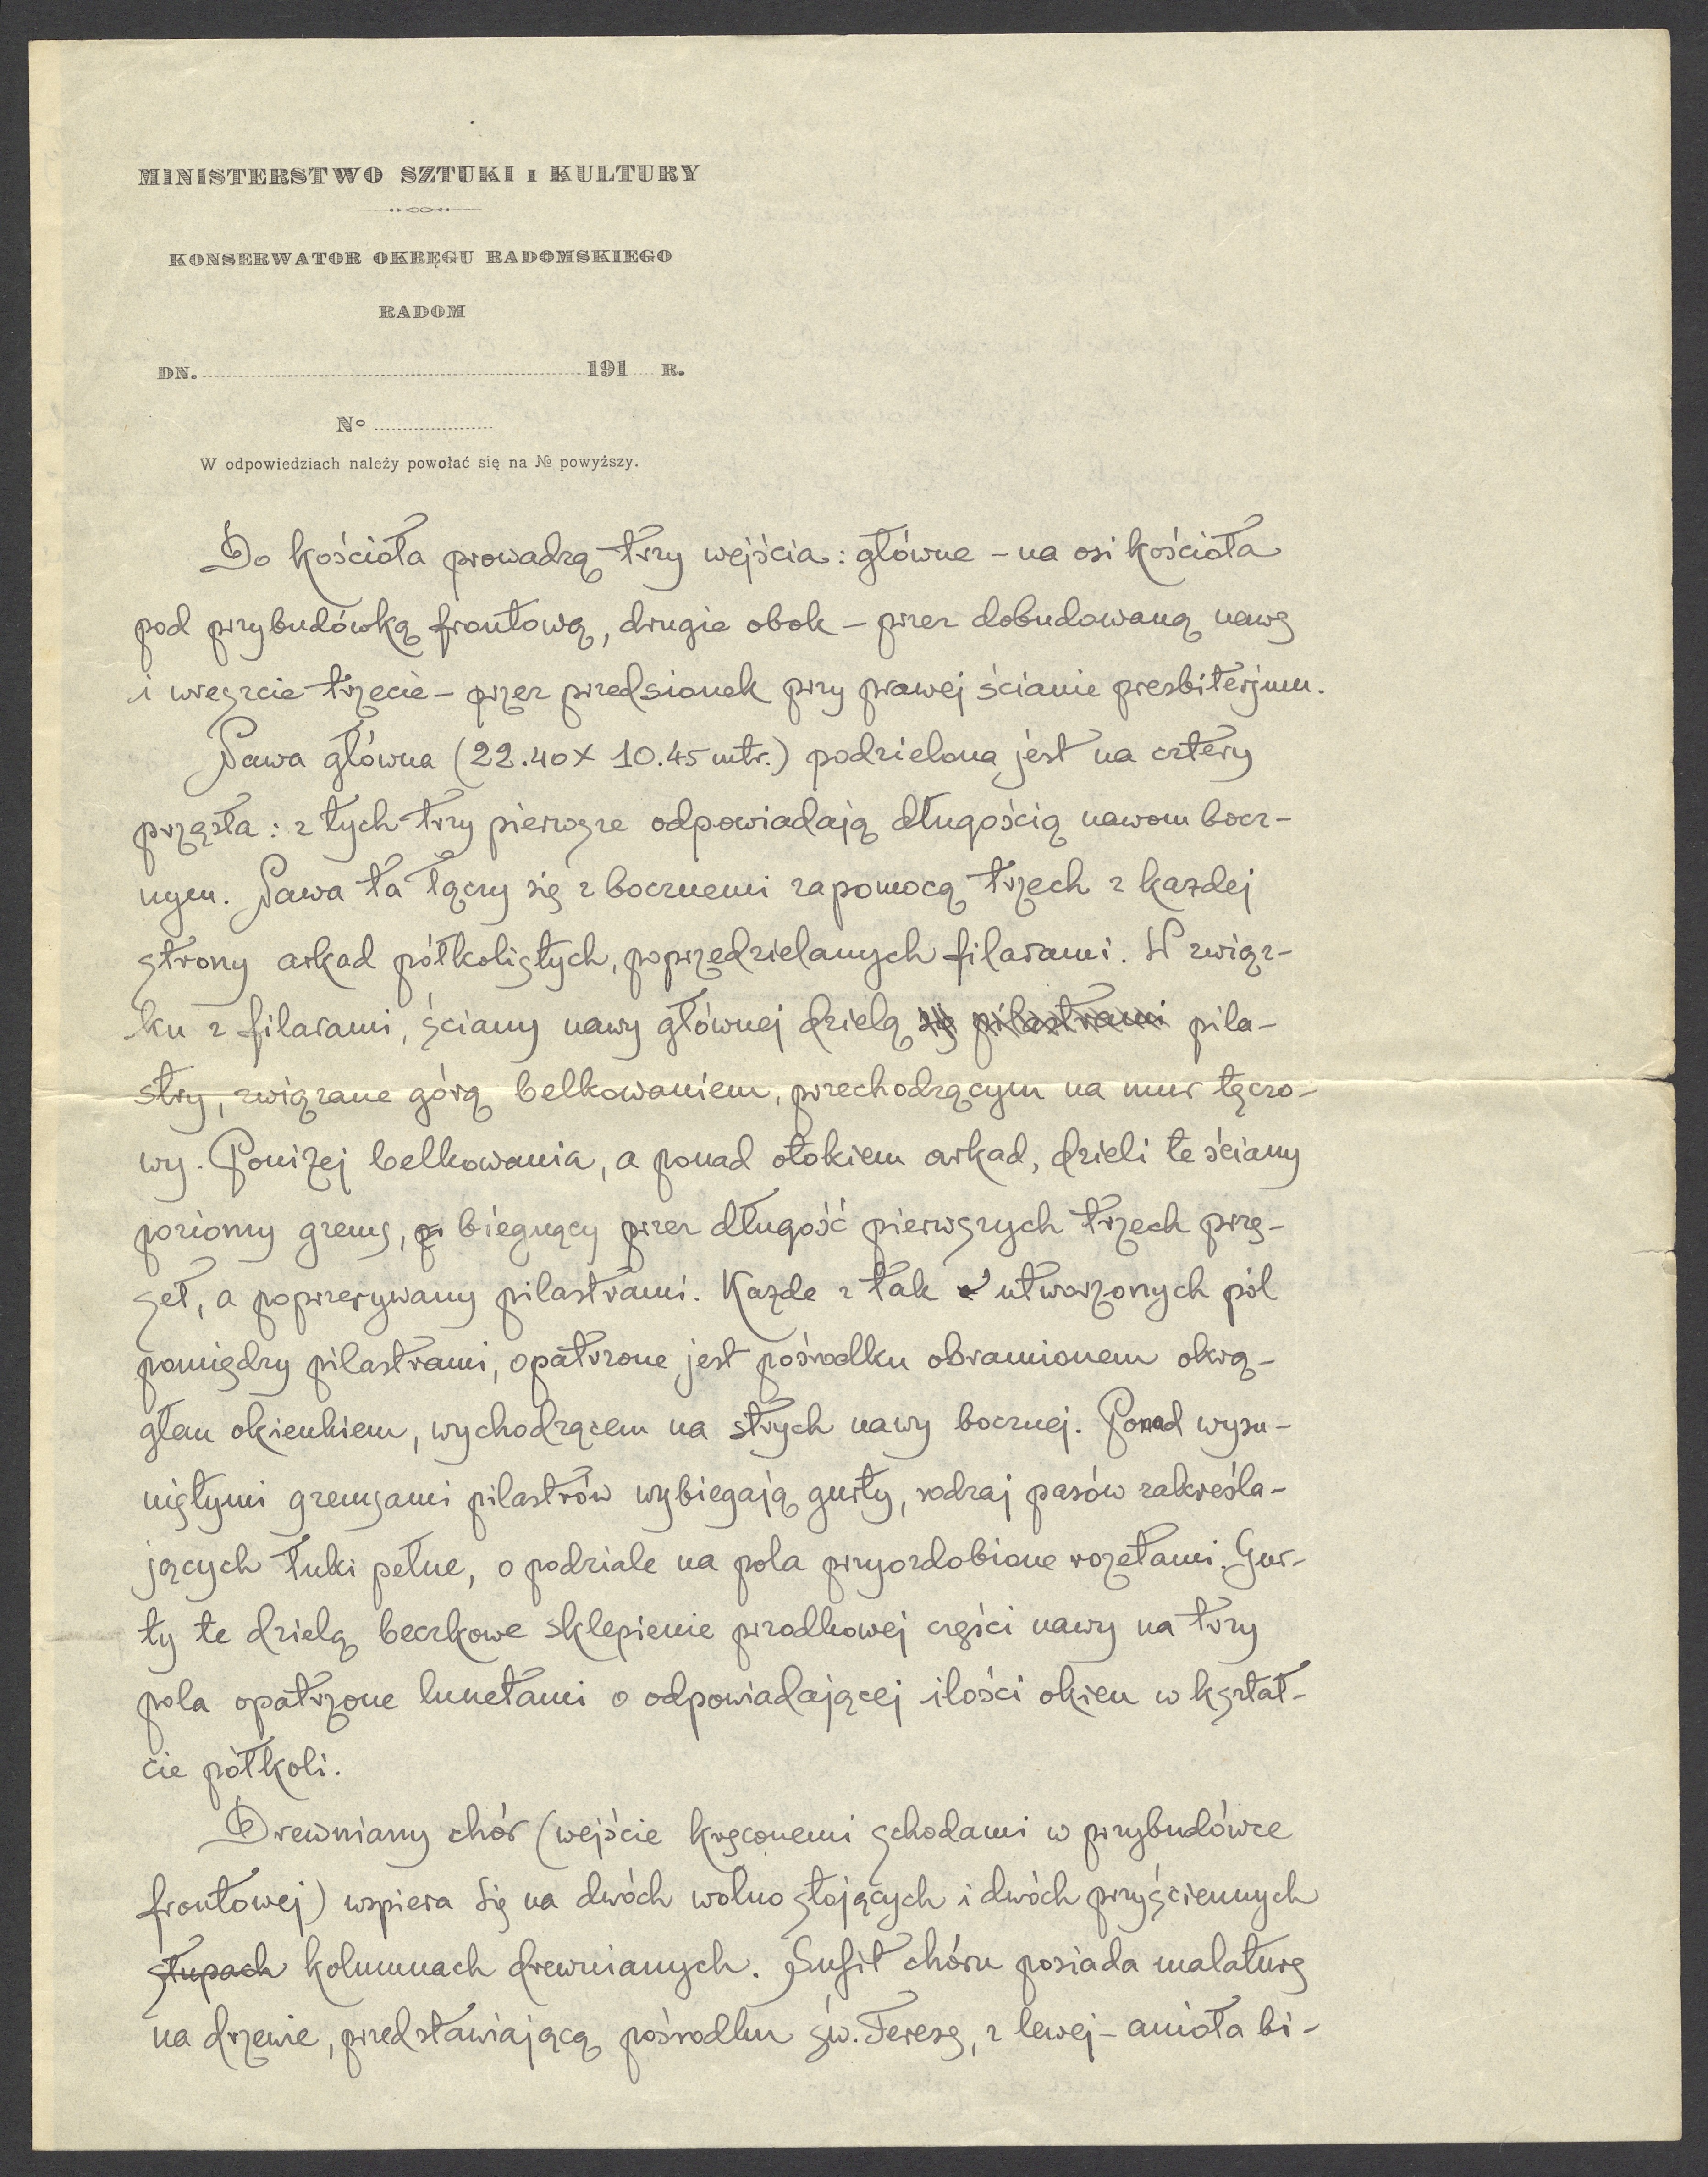 MINISTERSTWO SZTUKI I KULTURY
KONSERWATOR OKRĘGU RADOMSKIEGO
RADOM
DN. 191 R.
No
W odpowiedziach należy powołać się na № powyższy.
Do kościoła prowadzą trzy wejścia: główne – na osi kościoła
pod przybudówką frontową, drugie obok – przez dobudowaną nawę
i wreszcie trzecie – przez przedsionek przy prawej ścianie presbiterjum.
Nawa główna (22.40 × 10.45 mtr.) podzielona jest na cztery
przęsła: z tych trzy pierwsze odpowiadają długością nawom bocz-
nym. Nawa ta łączy się z bocznemi zapomocą trzech z każdej
strony arkad półkolistych, poprzedzielanych filarami. W związ-
ku z filarami, ściany nawy głównej dzielą się pilastrami pila-
stry, związane górą belkowaniem, przechodzącym na mur tęczo-
wy. Poniżej belkowania, a ponad otokiem arkad, dzieli te ściany
poziomy gzems, biegnący przez długość pierwszych trzech przę-
seł, a poprzerywany pilastrami. Każde z tak utworzonych pól
pomiędzy pilastrami, opatrzone jest pośrodku obramionem okrą-
głem okienkiem, wychodzącem na strych nawy bocznej. Ponad wysu-
niętymi gzemsami pilastrów wybiegają gurty, rodzaj pasów zakreśla-
jących łuki pełne, o podziale na pola przyozdobione rozetami. Gur-
ty te dzielą beczkowe sklepienie przodkowej części nawy na trzy
pola opatrzone lunetami o odpowiadającej ilości okien w kształ-
cie półkoli.
Drewniany chór (wejście kręconemi schodami w przybudówce
frontowej) wspiera się na dwóch wolno stojących i dwóch przyściennych
słupach kolumnach drewnianych. Sufit chóru posiada malaturę
na drzewie, przedstawiającą pośrodku św. Teresę, z lewej – anioła bi-